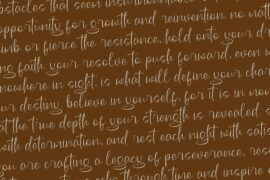 obstacles that seem insurmountable
opportunity for growth and reinvention. no matt
or fierce the resistance, hold onto your d
faith, your resolve to push forward, even
somewhere in sight, is what will define your chara
your destiny. believe in yourself, for it is in mo
at the true depth of your strength is revealed.
with determination, and rest each night with satis
you are crafting a legacy of perseverance, resi
through time and inspire